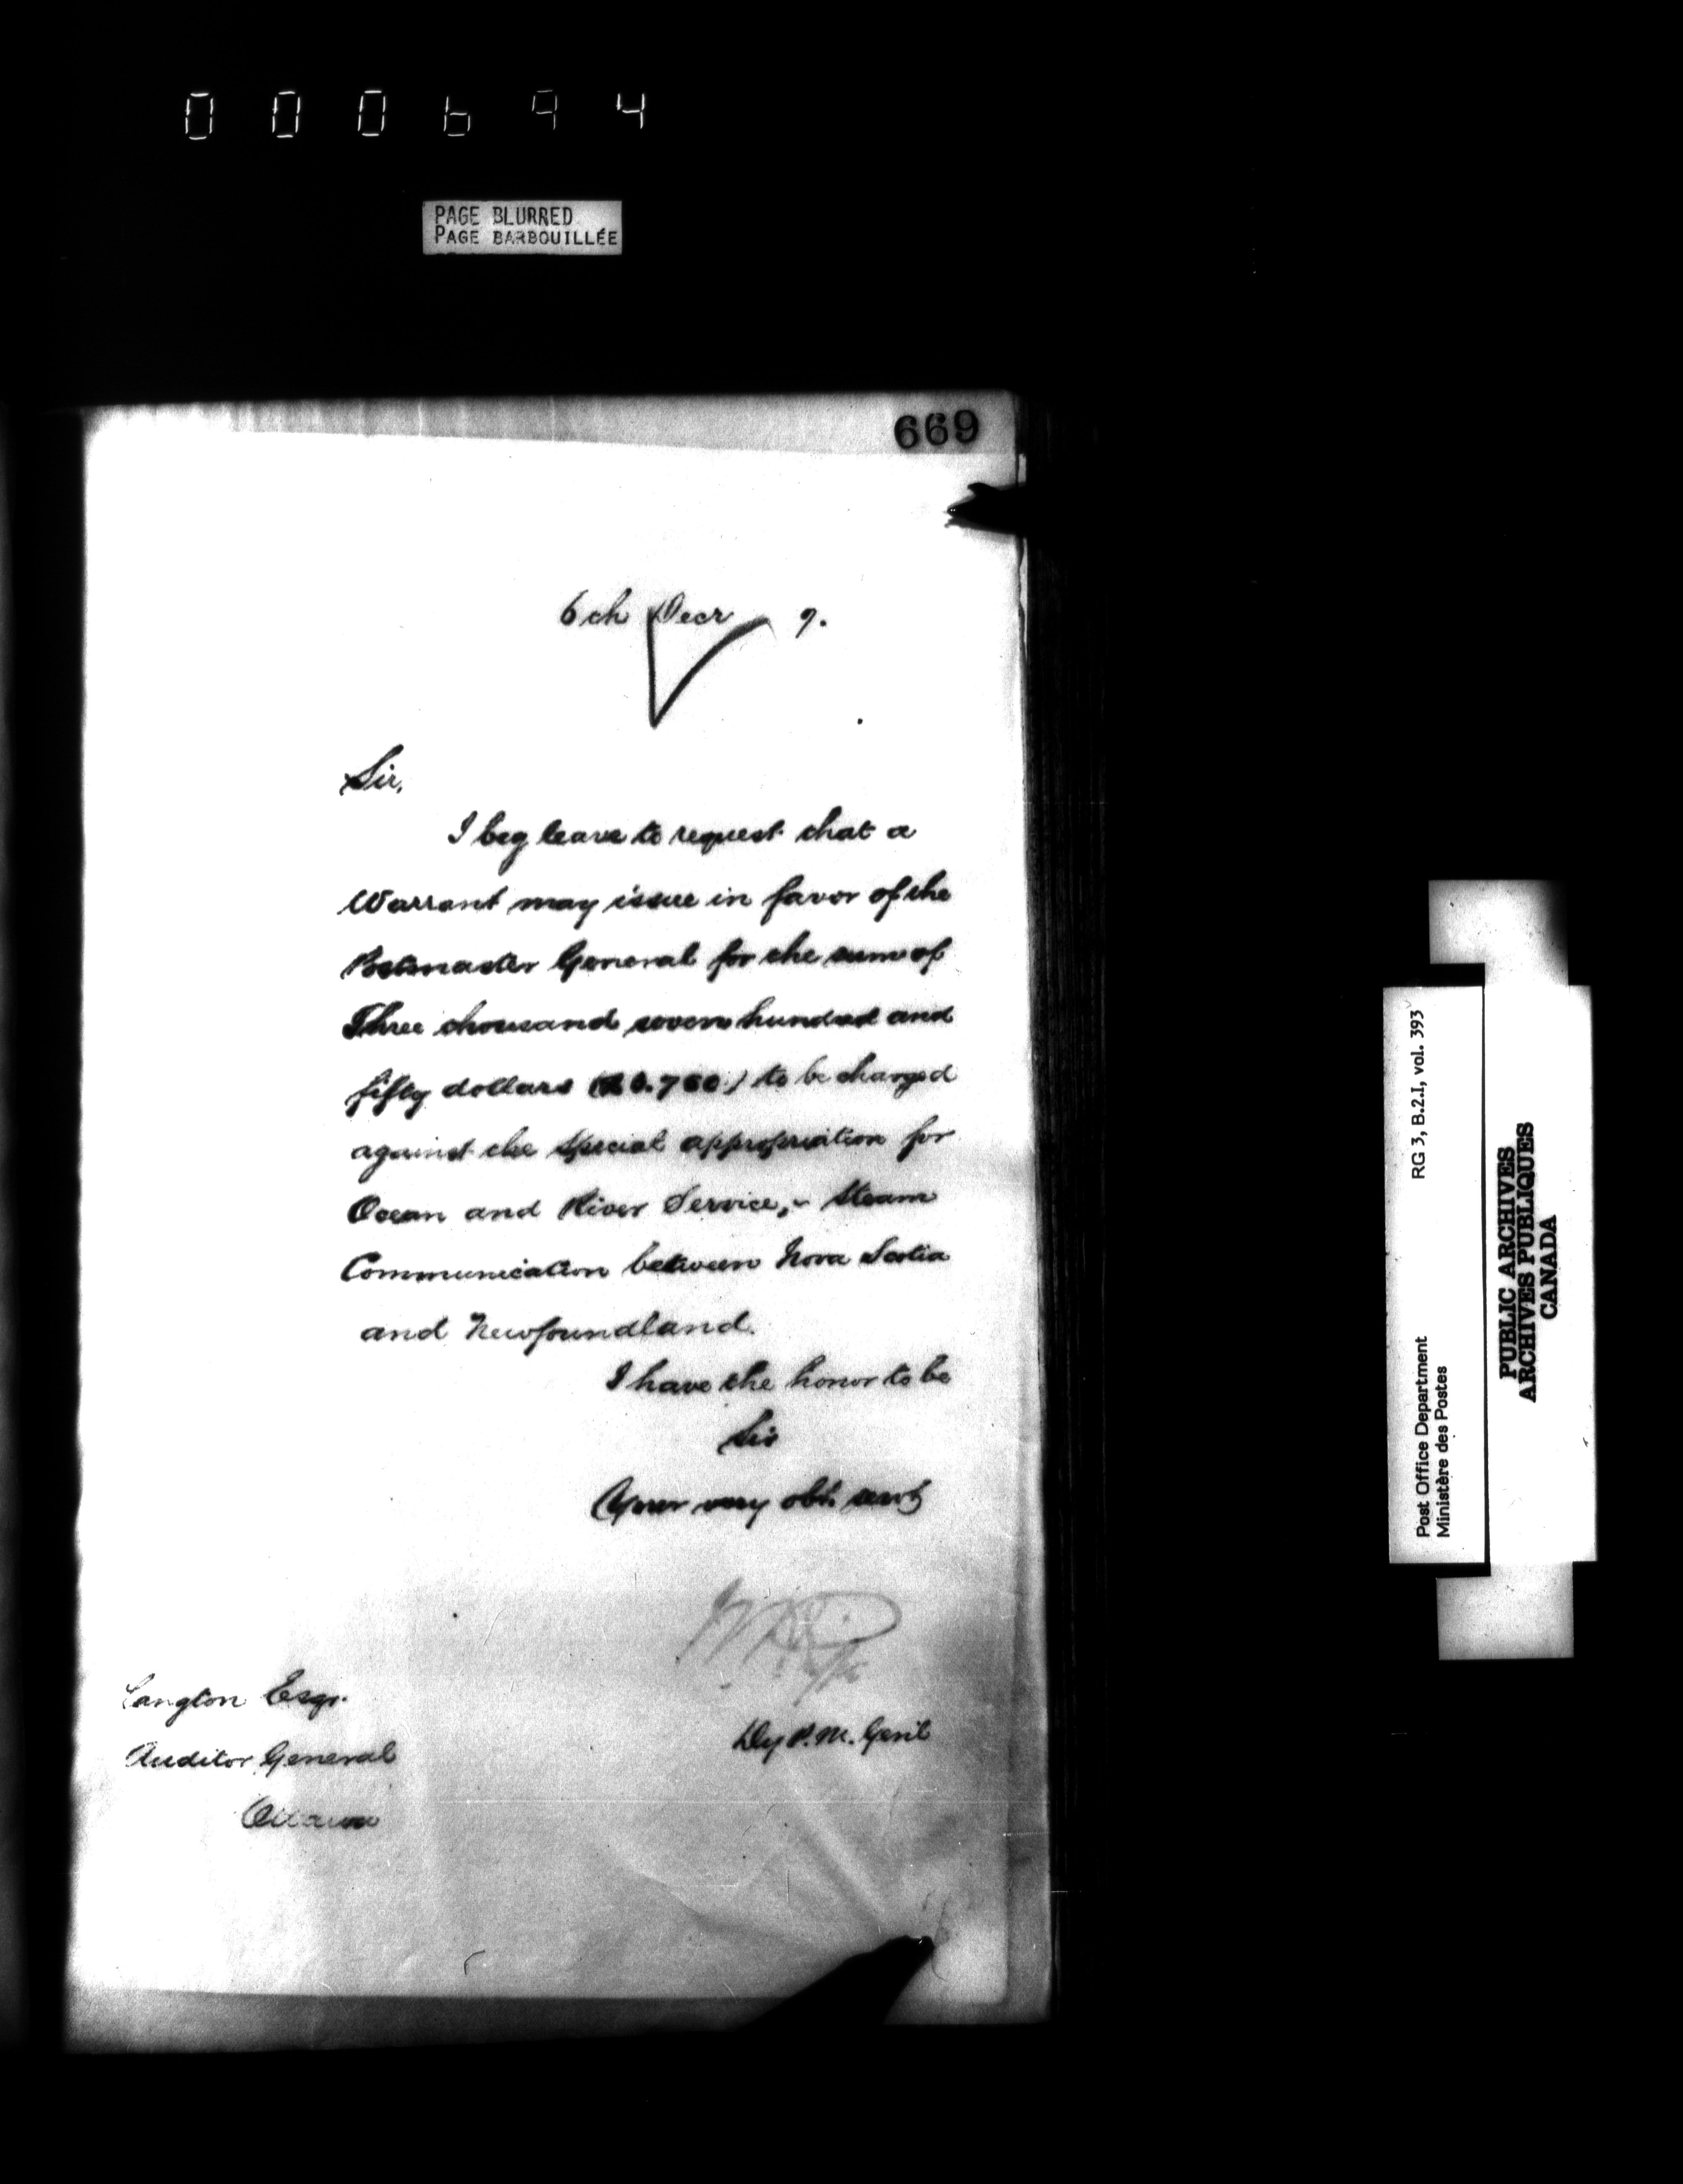 000694
PAGE BLURRED
PAGE BARBOUILLÉE
669
6th Decr 9.
Sir,
I beg leave to request that a
Warrant may issue in favor of the
Postmaster General for the sum of
Three thousand seven hundred and
fifty dollars ( ) to be charged
against the special appropriation for
Ocean and River Service, - Steam
Communication between Nova Scotia
and Newfoundland.
I have the honor to be
Sir
Your very obt. servt
Langton Esqr.
Auditor General
Ottawa
Dy P. M. Genl
RG 3, B.2.I, vol. 393
Post Office Department
Ministère des Postes
PUBLIC ARCHIVES
ARCHIVES PUBLIQUES
CANADA